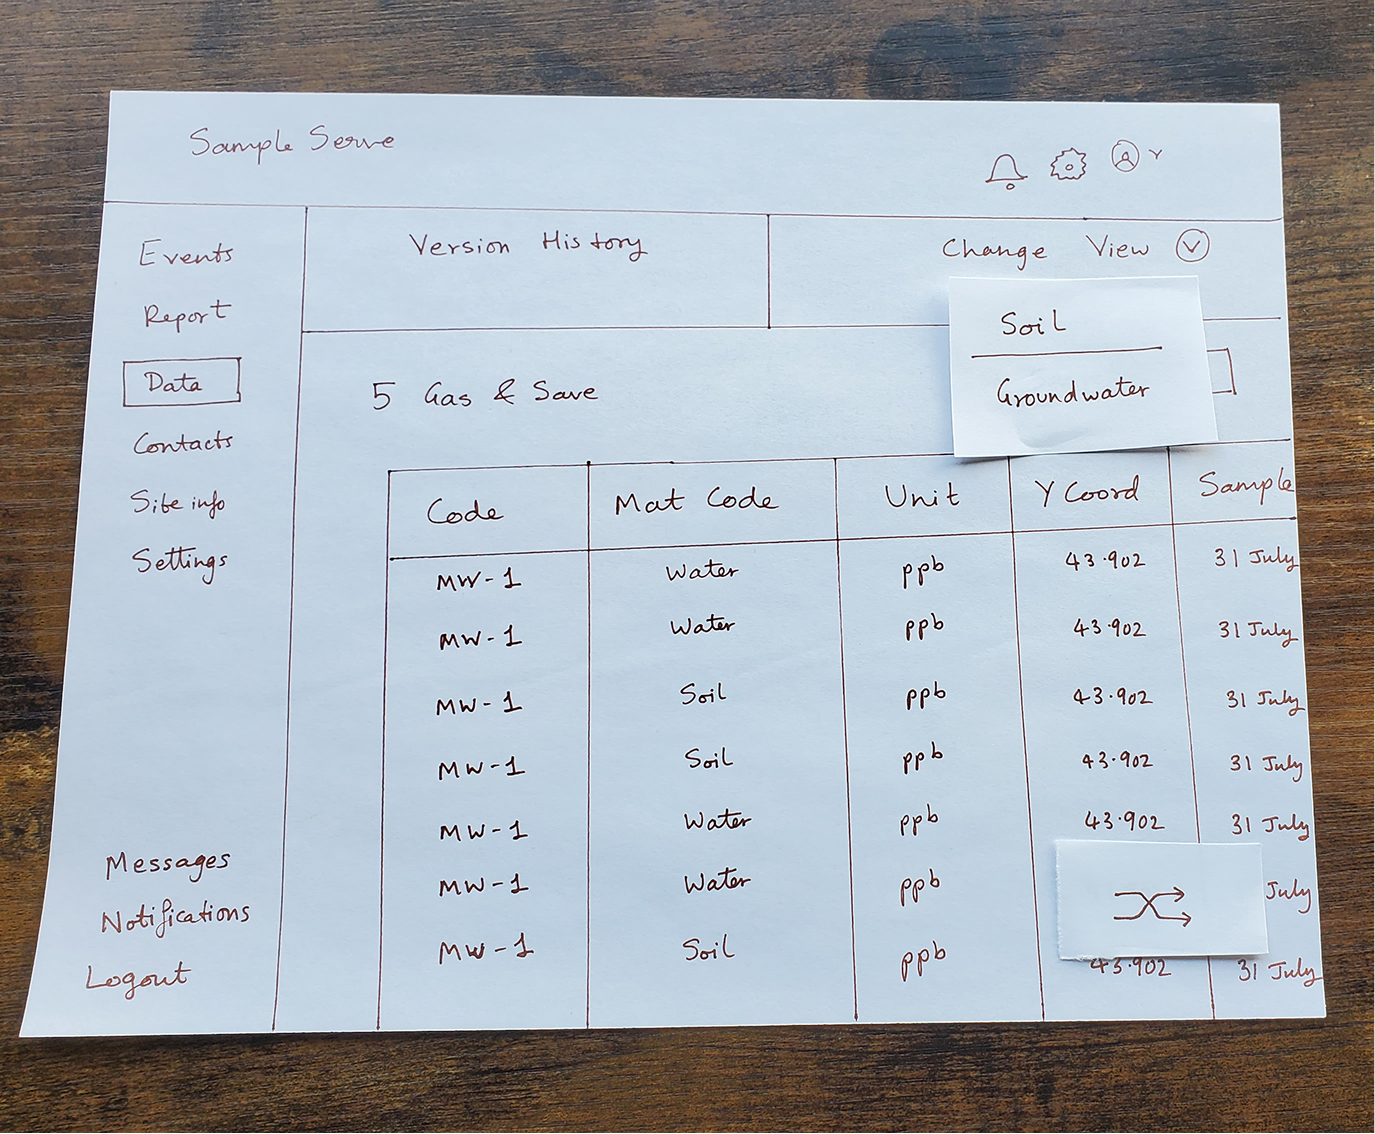 Sample Serve
Events
Report
Data
Contacts
Site info
Settings
Messages
Notifications
Logout
Version History
Change View
Soil
Groundwater
5 Gas & Save
Code Mat Code Unit Y Coord Sample
MW-1 Water ppb 43.902 31 July
MW-1 Water ppb 43.902 31 July
MW-1 Soil ppb 43.902 31 July
MW-1 Soil ppb 43.902 31 July
MW-1 Water ppb 43.902 31 July
MW-1 Water ppb July
MW-1 Soil ppb 43.902 31 July